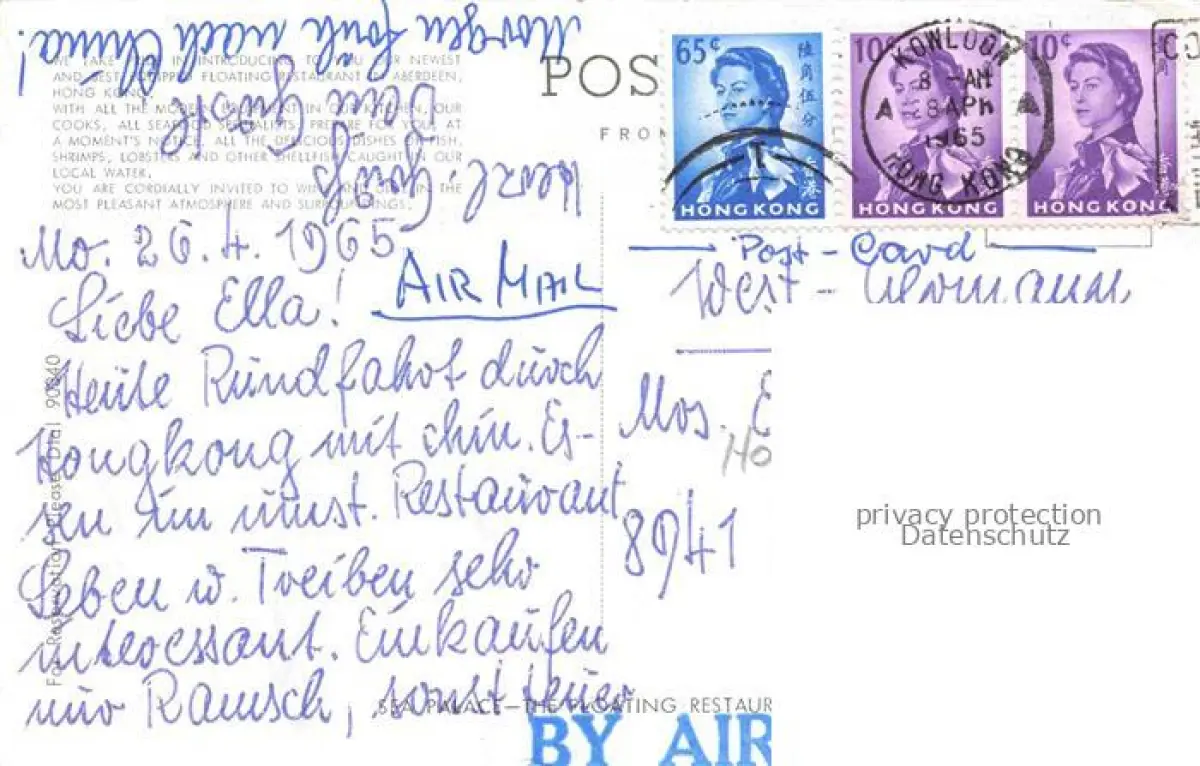 WE TAKE IN INTRODUCING TO YOU OUR NEWEST
AND BEST EQUIPPED FLOATING RESTAURANT IN ABERDEEN,
HONG KONG
WITH ALL THE MODERN EQUIPMENT IN OUR KITCHEN, OUR
COOKS, ALL SEAFOOD SPECIALISTS, PREPARE FOR YOU, AT
A MOMENT'S NOTICE, ALL THE DELICIOUS DISHES OF FISH,
SHRIMPS, LOBSTERS AND OTHER SHELLFISH CAUGHT IN OUR
LOCAL WATER.
YOU ARE CORDIALLY INVITED TO WINE AND DINE IN THE
MOST PLEASANT ATMOSPHERE AND SURROUNDINGS.
Mo. 26.4.1965
AIR MAIL
Liebe Ella!
Heute Rundfahrt durch
Hongkong mit chin. Es-
sen im Restaurant
Leben u. Treiben sehr
interessant. Einkaufen
nur Rausch, sonst teuer
Morgen früh nach China!
Dein Gust
Herzl. Grüß
For Reservation Please Dial 90040
SEA PALACE—THE FLOATING RESTAUR
BY AIR
POS
FROM
65¢
陸角伍分
香港
HONG KONG
10¢
HONG KONG
10¢
HONG KONG
KOWLOON
8 -AM
A 28 AP
1965
HONG KONG
Post-Card
West-
Mos. E
Ho
8941
privacy protection
Datenschutz